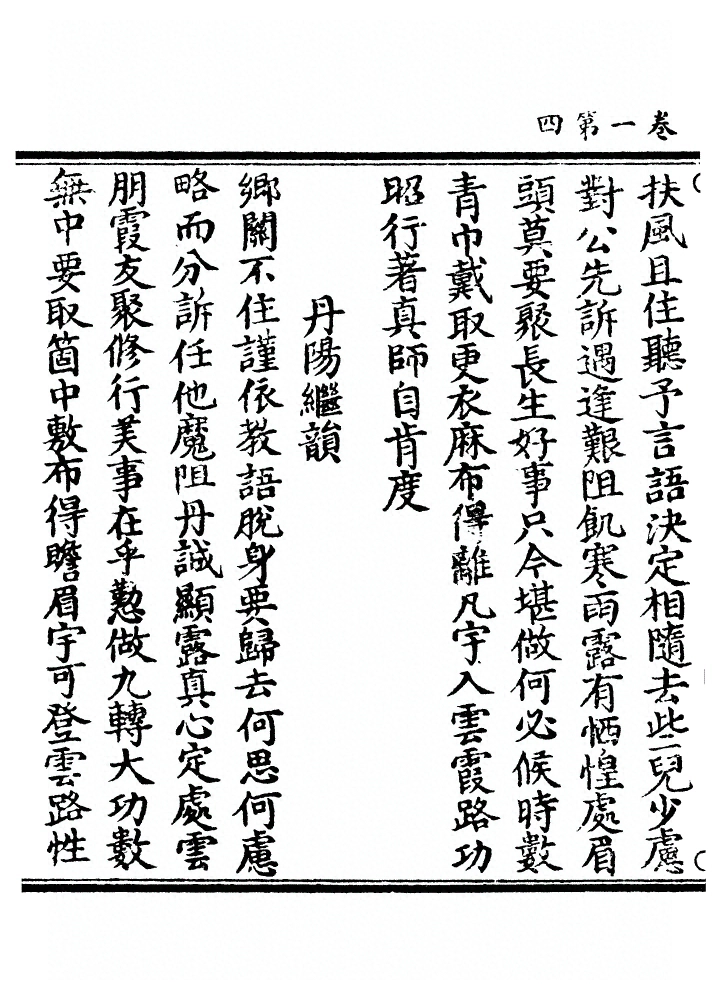 卷一第四
扶風且住聽予言語決定相隨去些兒少慮
對公先訴遇逢艱阻飢寒雨露有恓惶處眉
頭莫要聚長生好事只今堪做何必候時數
青巾戴取更衣麻布得離凡宇入雲霞路功
昭行著真師自肯度
丹陽繼韻
鄉關不住謹依教語脫身要歸去何思何慮
略而分訴任他魔阻丹誠顯露真心定處雲
朋霞友聚修行美事在乎懃做九轉大功數
無中要取箇中敷布得瞻眉宇可登雲路性